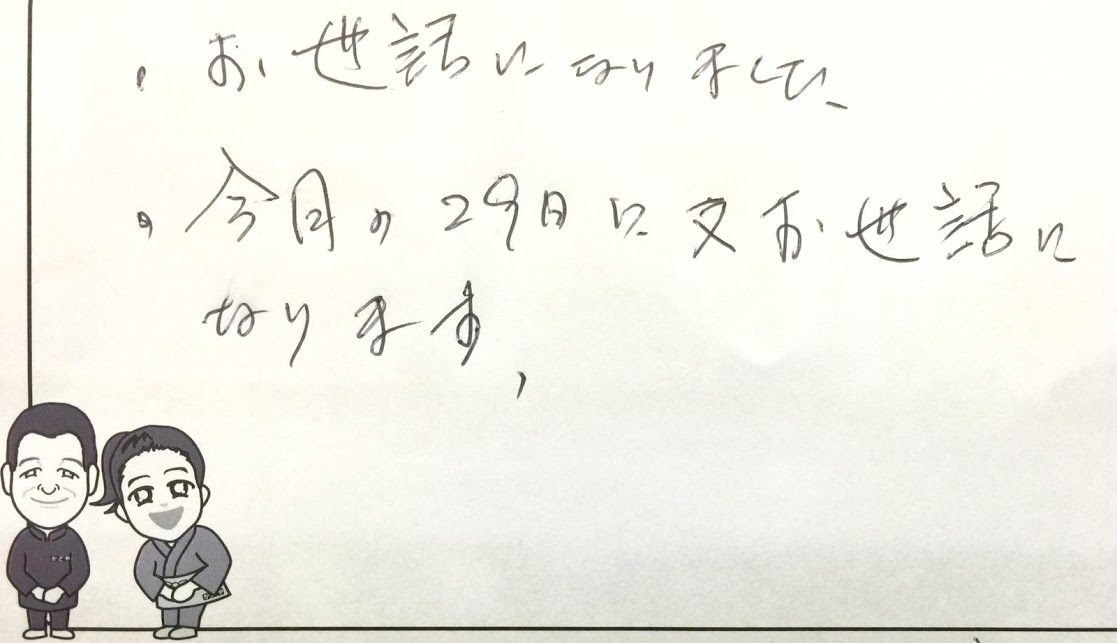 ・お世話になりまして、
・今月の29日に又お世話に
なります、